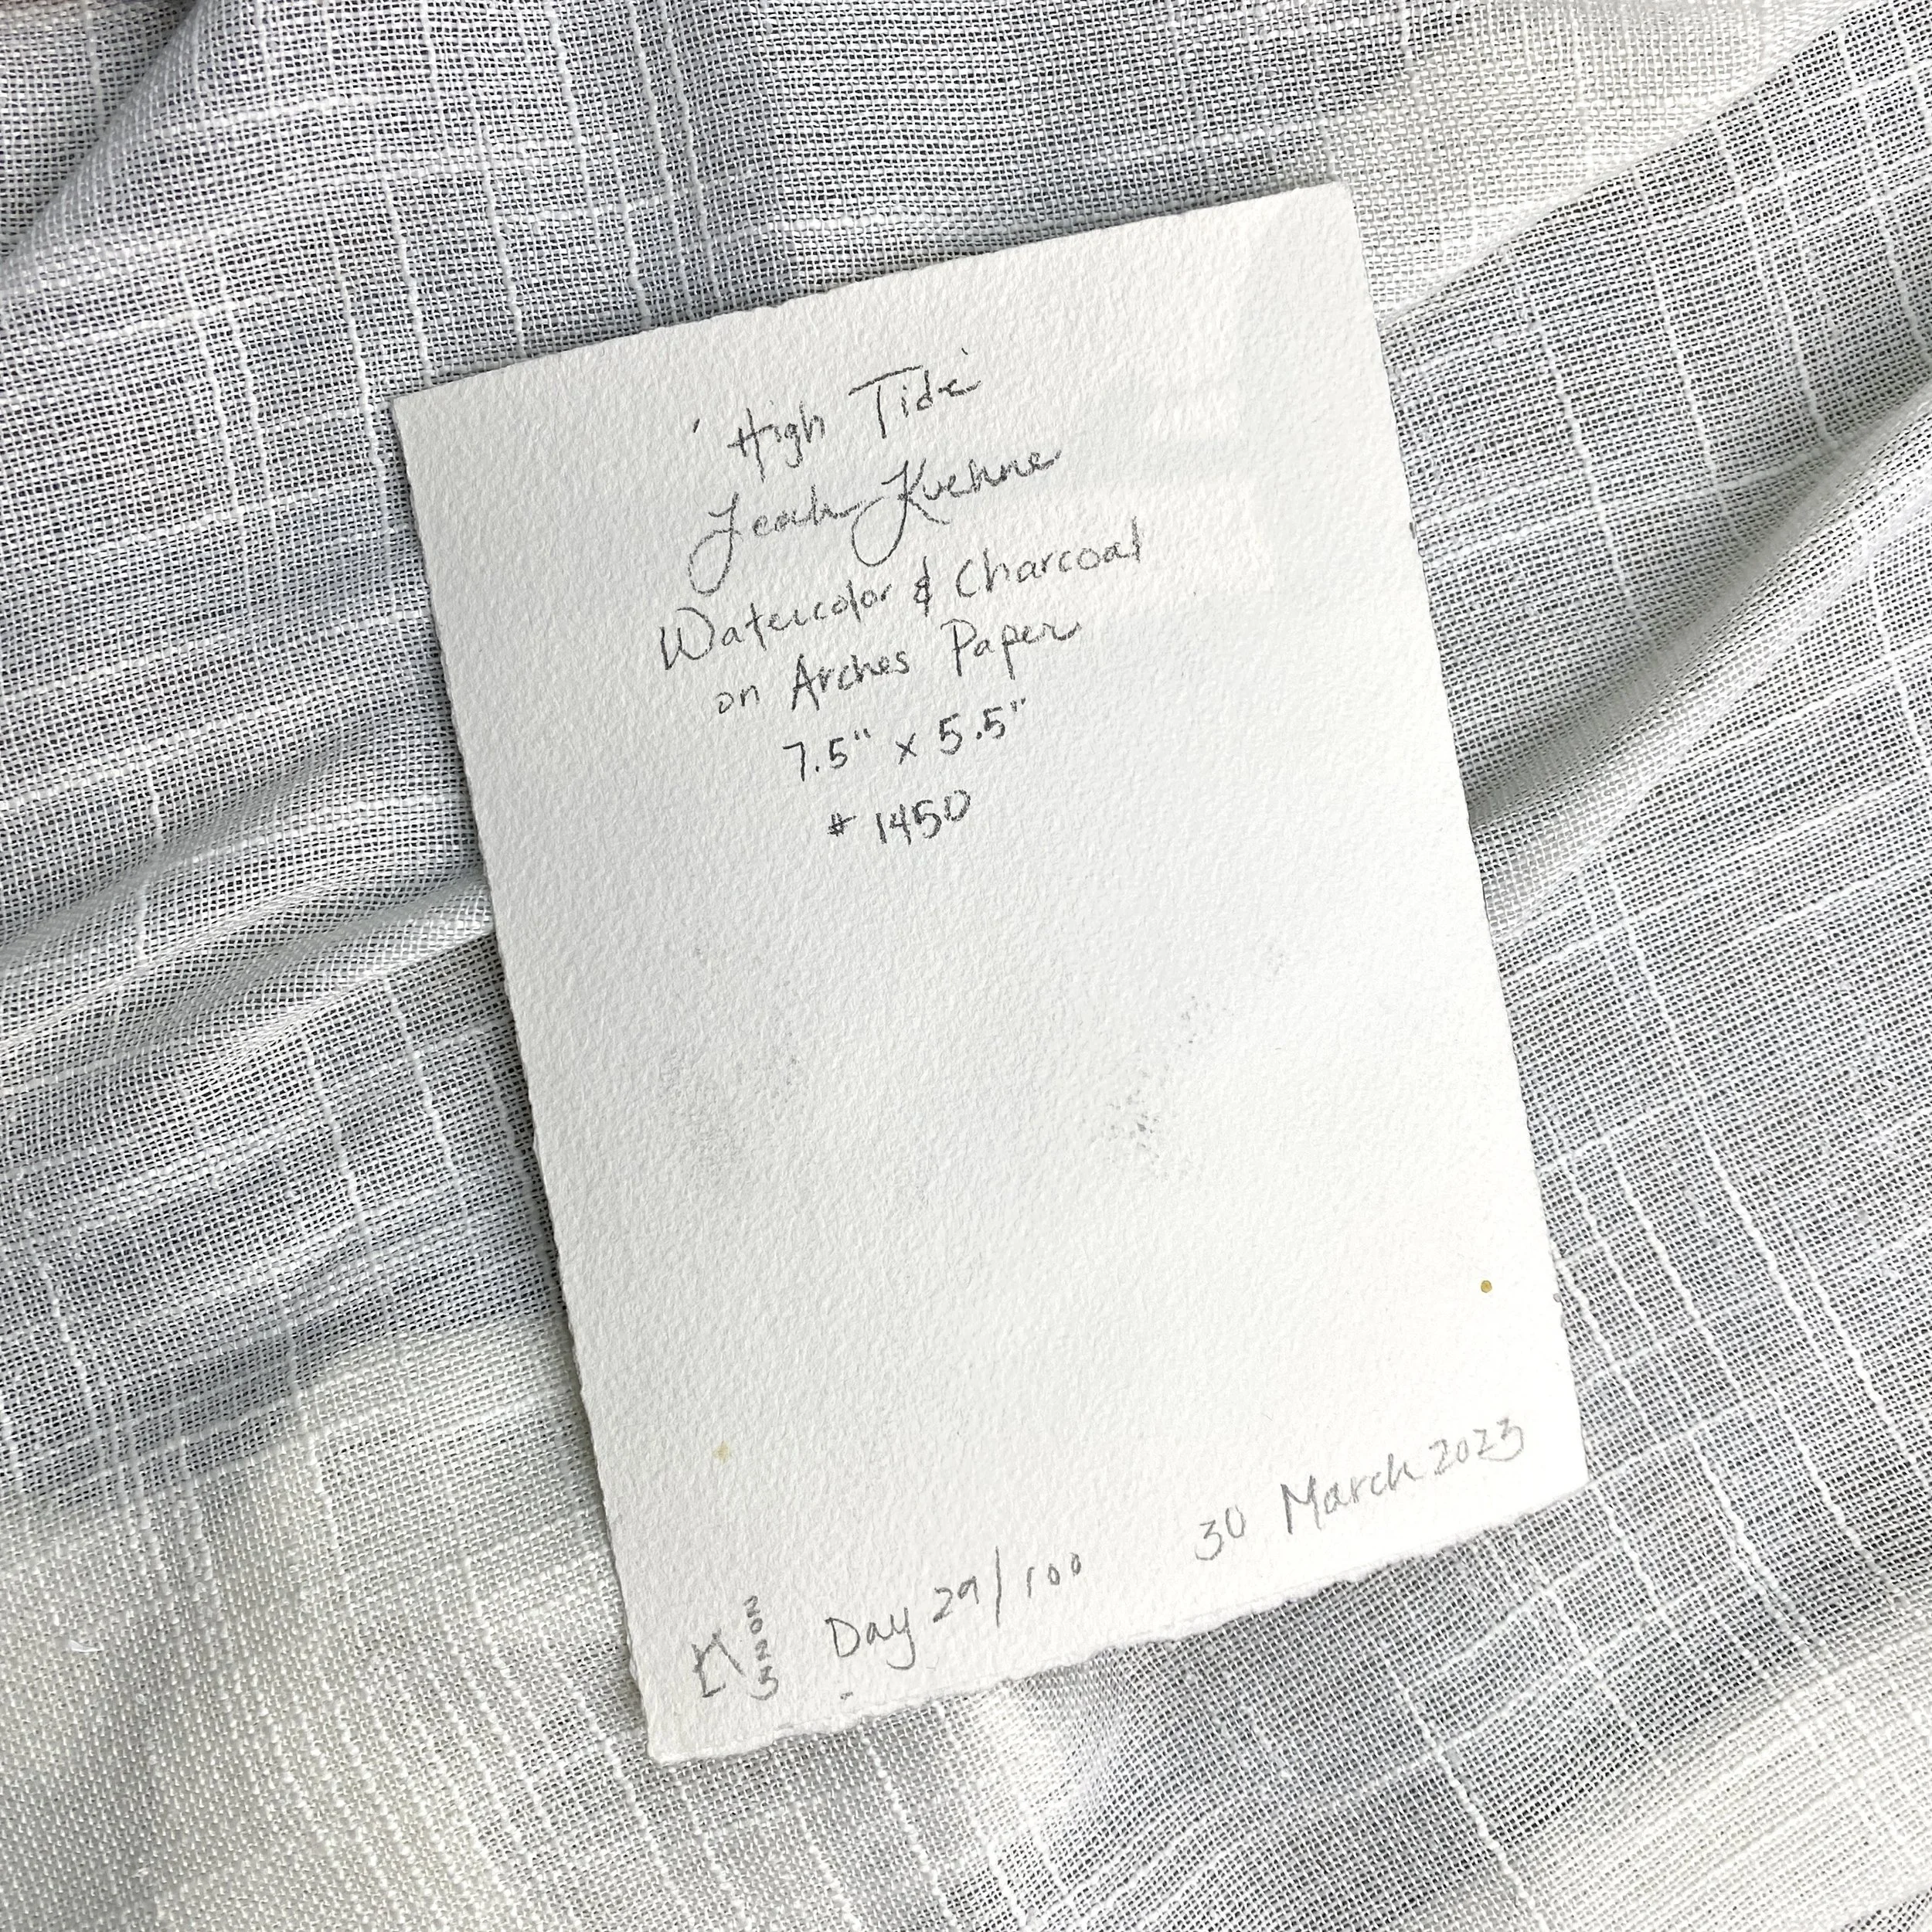 'High Tide'
Leah Kuehne
Watercolor & Charcoal
on Arches Paper
7.5" x 5.5"
# 1450
K 2023 Day 29/100 30 March 2023